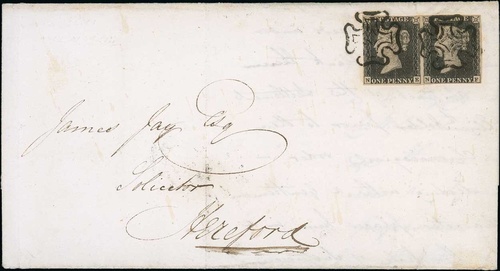 POSTAGE POSTAGE
ONE PENNY ONE PENNY
James Jay Esq
Solicitor
Hereford